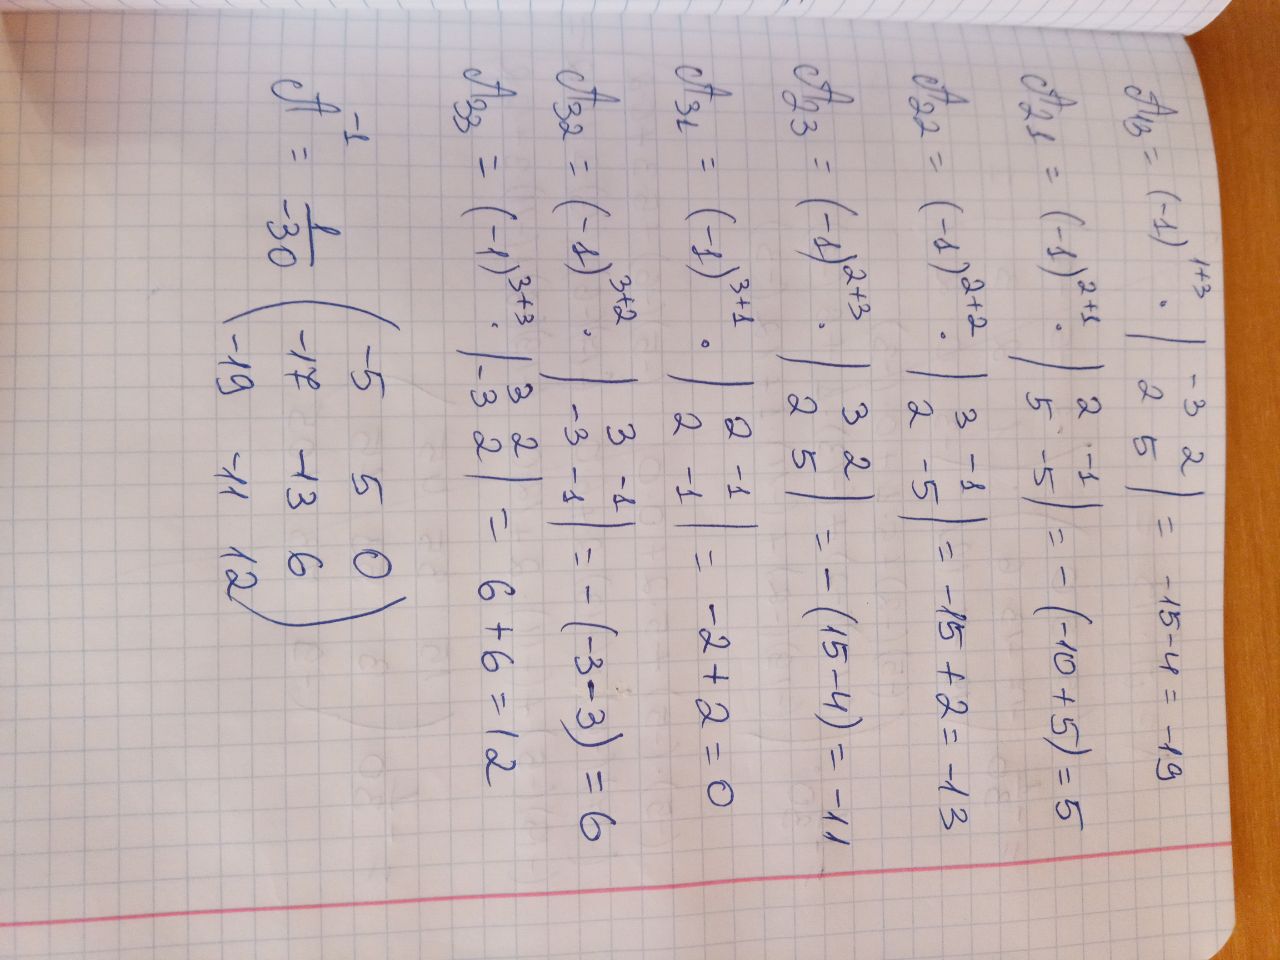 A₁₃ = (-1)¹⁺³ · | -3 2 ; 2 5 | = -15-4 = -19
A₂₁ = (-1)²⁺¹ · | 2 -1 ; 5 -5 | = - (-10+5) = 5
A₂₂ = (-1)²⁺² · | 3 -1 ; 2 -5 | = -15+2 = -13
A₂₃ = (-1)²⁺³ · | 3 2 ; 2 5 | = - (15-4) = -11
A₃₁ = (-1)³⁺¹ · | 2 -1 ; 2 -1 | = -2+2 = 0
A₃₂ = (-1)³⁺² · | 3 -1 ; -3 -1 | = - (-3-3) = 6
A₃₃ = (-1)³⁺³ · | 3 2 ; -3 2 | = 6+6 = 12
A⁻¹ = 1/-30 ( -5 5 0 ; -17 -13 6 ; -19 -11 12 )